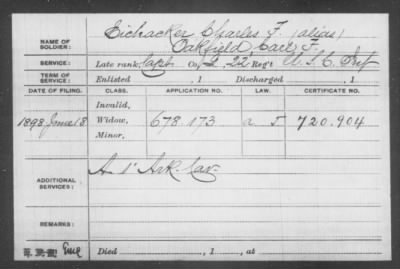 NAME OF SOLDIER: Eichacker Charles F. (alias)
Oakfield, Carl F.
SERVICE: Late rank, Capt Co. 22 Reg't U.S.C. Inf
TERM OF SERVICE: Enlisted , 1 Discharged , 1
DATE OF FILING. CLASS. APPLICATION NO. LAW. CERTIFICATE NO.
Invalid,
1898 June 18 Widow, 678.173 720.904
Minor,
ADDITIONAL SERVICES: A 1" Ark. Cav.
REMARKS:
Died , 1 , at